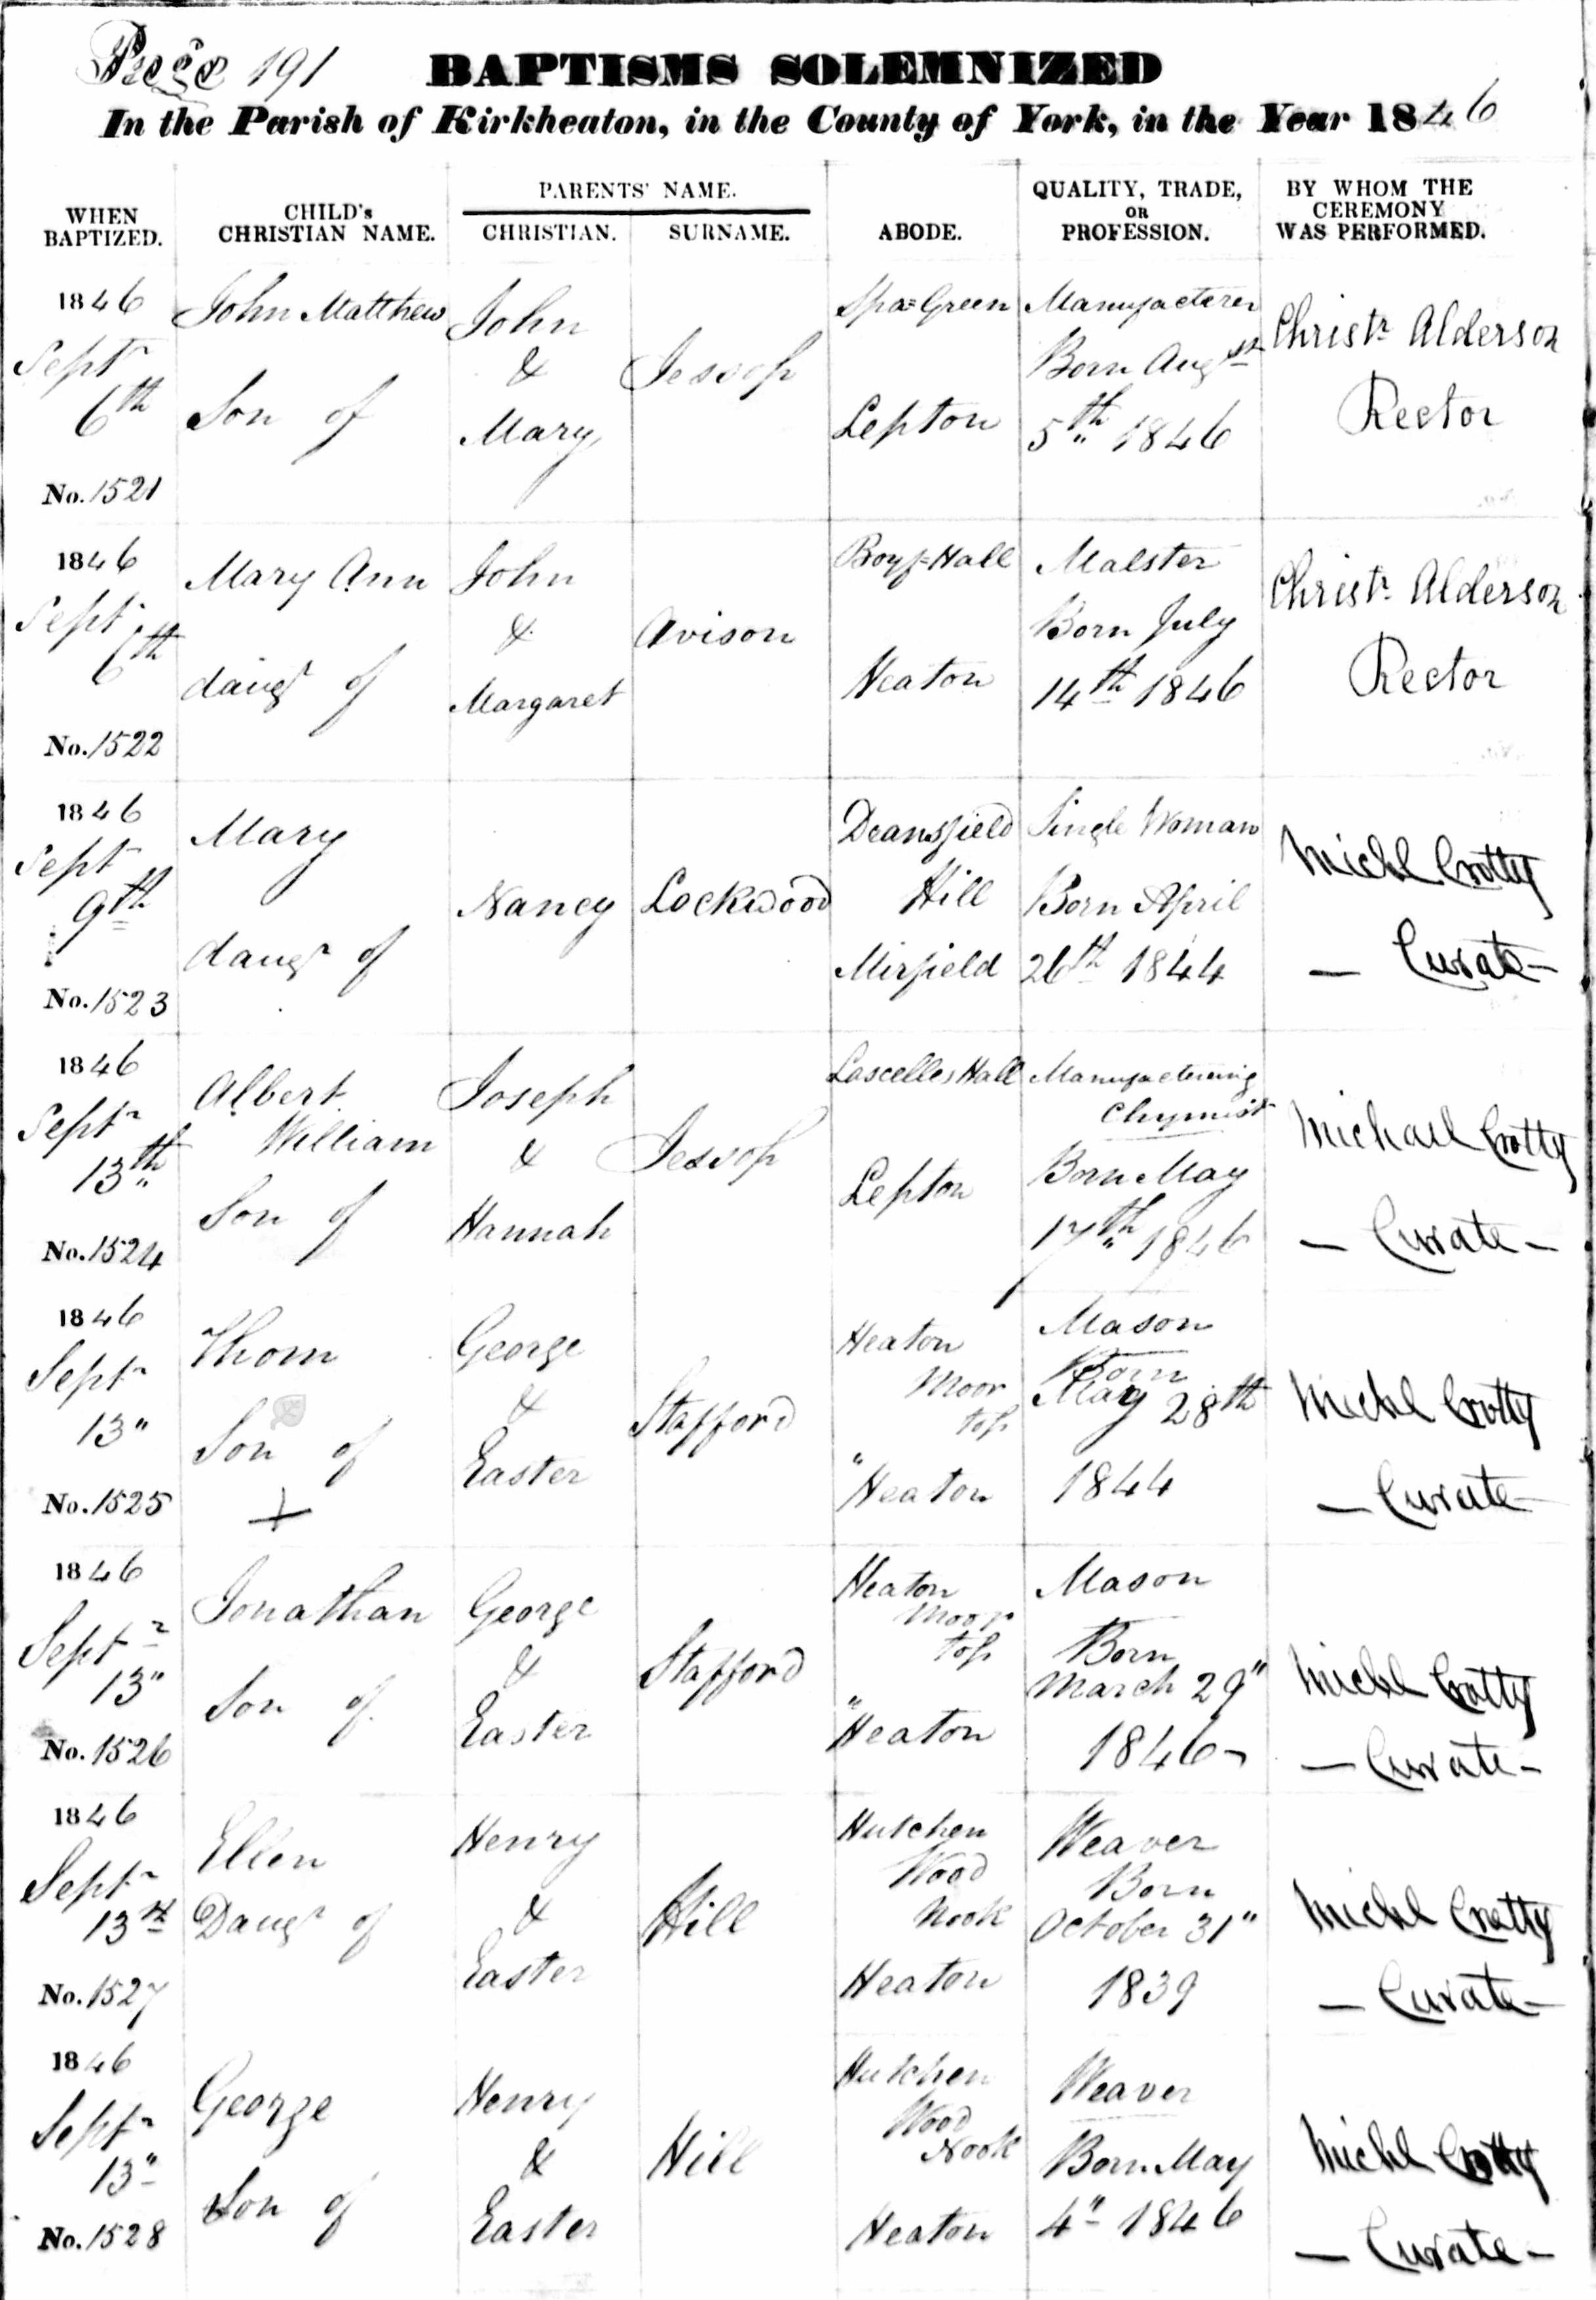 Page 191 BAPTISMS SOLEMNIZED
In the Parish of Kirkheaton, in the County of York, in the Year 1846
WHEN BAPTIZED.
CHILD's CHRISTIAN NAME.
PARENTS' NAME.
CHRISTIAN.
SURNAME.
ABODE.
QUALITY, TRADE, OR PROFESSION.
BY WHOM THE CEREMONY WAS PERFORMED.
1846
Sept
6th
No. 1521
John Matthew
Son of
John
&
Mary
Jessop
Spa=Green
Lepton
Manufacterer
Born Augst
5th 1846
Christr Alderson
Rector
1846
Sept
6th
No. 1522
Mary Ann
daugr of
John
&
Margaret
Avison
Boyf=Hall
Heaton
Malster
Born July
14th 1846
Christr Alderson
Rector
1846
Sept
9th
No. 1523
Mary
daugr of
Nancy
Lockwood
Deansfield
Hill
Mirfield
Single Woman
Born April
26th 1844
Michl Crotty
— Curate —
1846
Septr
13th
No. 1524
Albert
William
Son of
Joseph
&
Hannah
Jessop
Lascelles Hall
Lepton
Manufacturing
Chymist
Born May
17th 1846
Michael Crotty
— Curate —
1846
Septr
13"
No. 1525
Thom
Son of
+
George
&
Easter
Stafford
Heaton
Moor
top
"
Heaton
Mason
Born
May 28th
1844
Michl Crotty
— Curate —
1846
Septr
13"
No. 1526
Jonathan
Son of
George
&
Easter
Stafford
Heaton
Moor
top
"
Heaton
Mason
Born
March 29"
1846
Michl Crotty
— Curate —
1846
Septr
13th
No. 1527
Ellen
Daugr of
Henry
&
Easter
Hill
Hutchen
Wood
Nook
Heaton
Weaver
Born
October 31"
1839
Michl Crotty
— Curate —
1846
Septr
13"
No. 1528
George
Son of
Henry
&
Easter
Hill
Hutchen
Wood
Nook
Heaton
Weaver
Born May
4" 1846
Michl Crotty
— Curate —